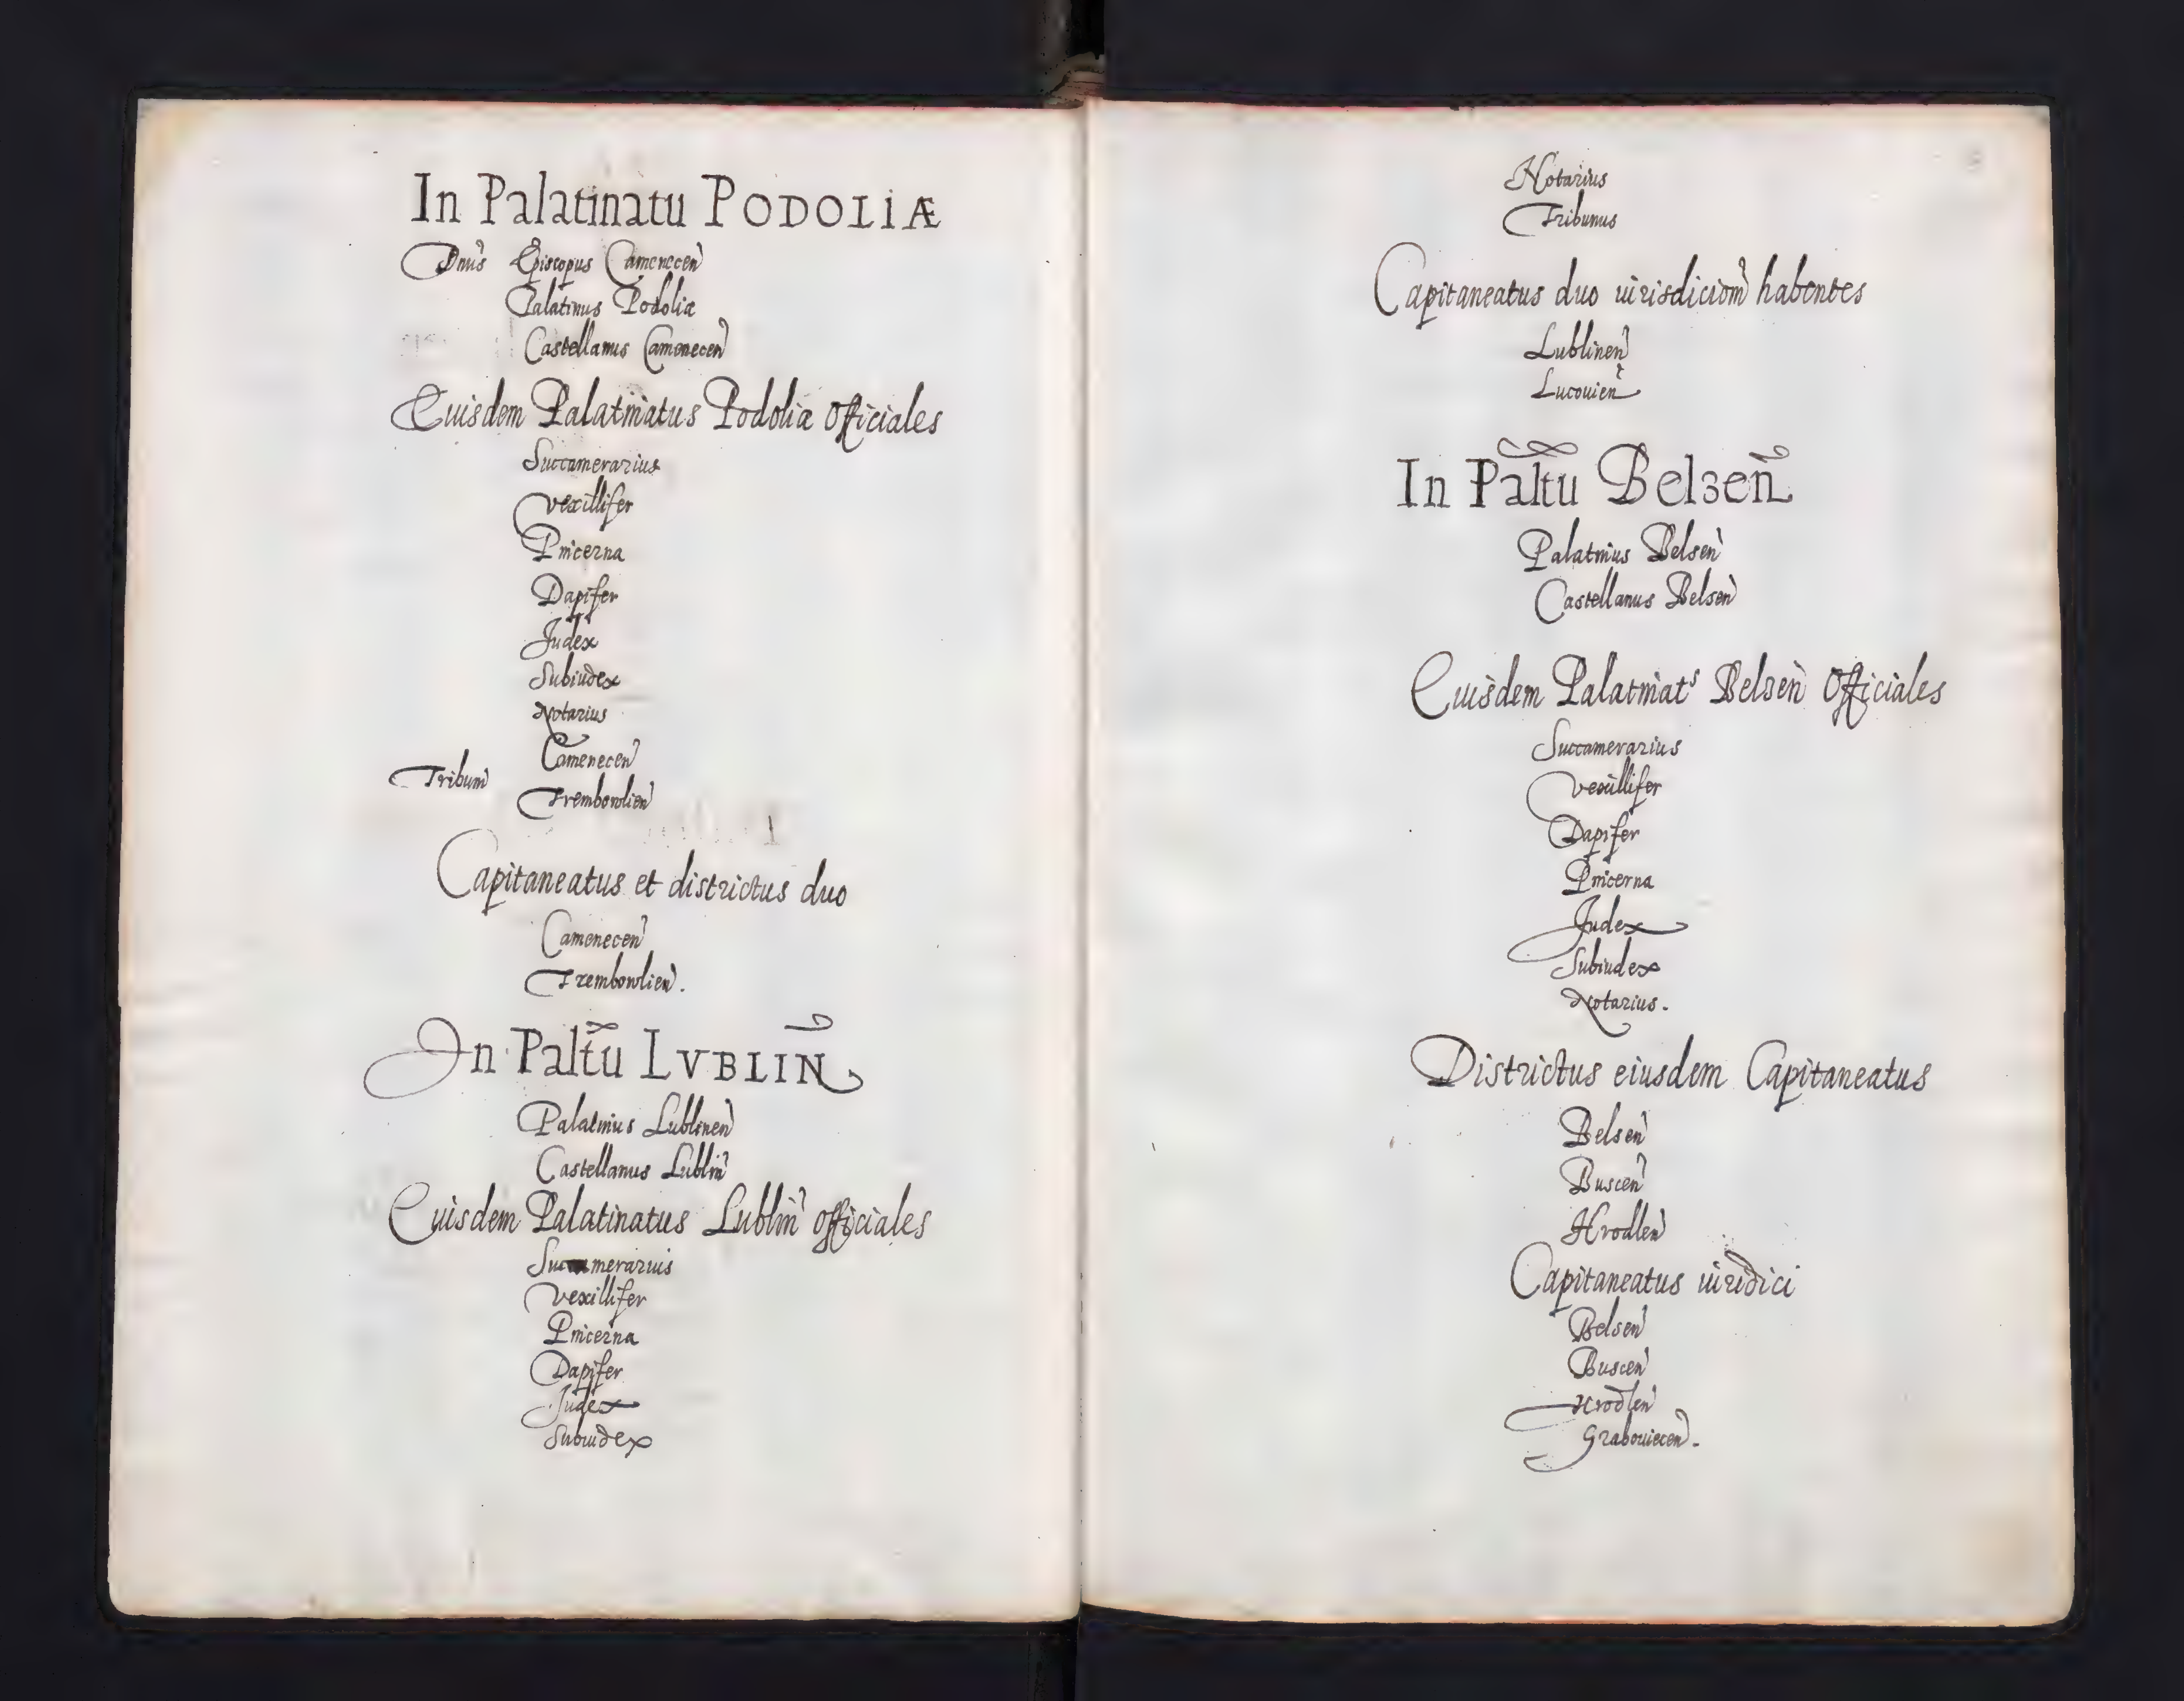 In Palatinatu PODOLIÆ
Dnus Episcopus Camenecen
Palatinus Podoliæ
Castellanus Camenecen
Euisdem Palatinatus Podoliæ Officiales
Succamerarius
vexillifer
Pincerna
Dapifer
Judex
Subiudex
Notarius
Camenecen
Tribuni
Trembowlien
Capitaneatus et districtus duo
Camenecen
Trembowlien.
In Paltu LVBLIN
Palatinus Lublinen
Castellanus Lublin
Euisdem Palatinatus Lublin officiales
Succamerarius
vexillifer
Pincerna
Dapifer
Judex
Subiudex
Notarius
Tribunus
Capitaneatus duo iurisdiciom habentes
Lublinen
Lucouien
In Paltu Belzen
Palatinus Belsen
Castellanus Belsen
Euisdem Palatinats Belzen Officiales
Succamerarius
vexillifer
Dapifer
Pincerna
Judex
Subiudex
Notarius.
Districtus eiusdem Capitaneatus
Belsen
Buscen
Hrodlen
Capitaneatus iuridici
Belsen
Buscen
Hrodlen
Grabouiecen.